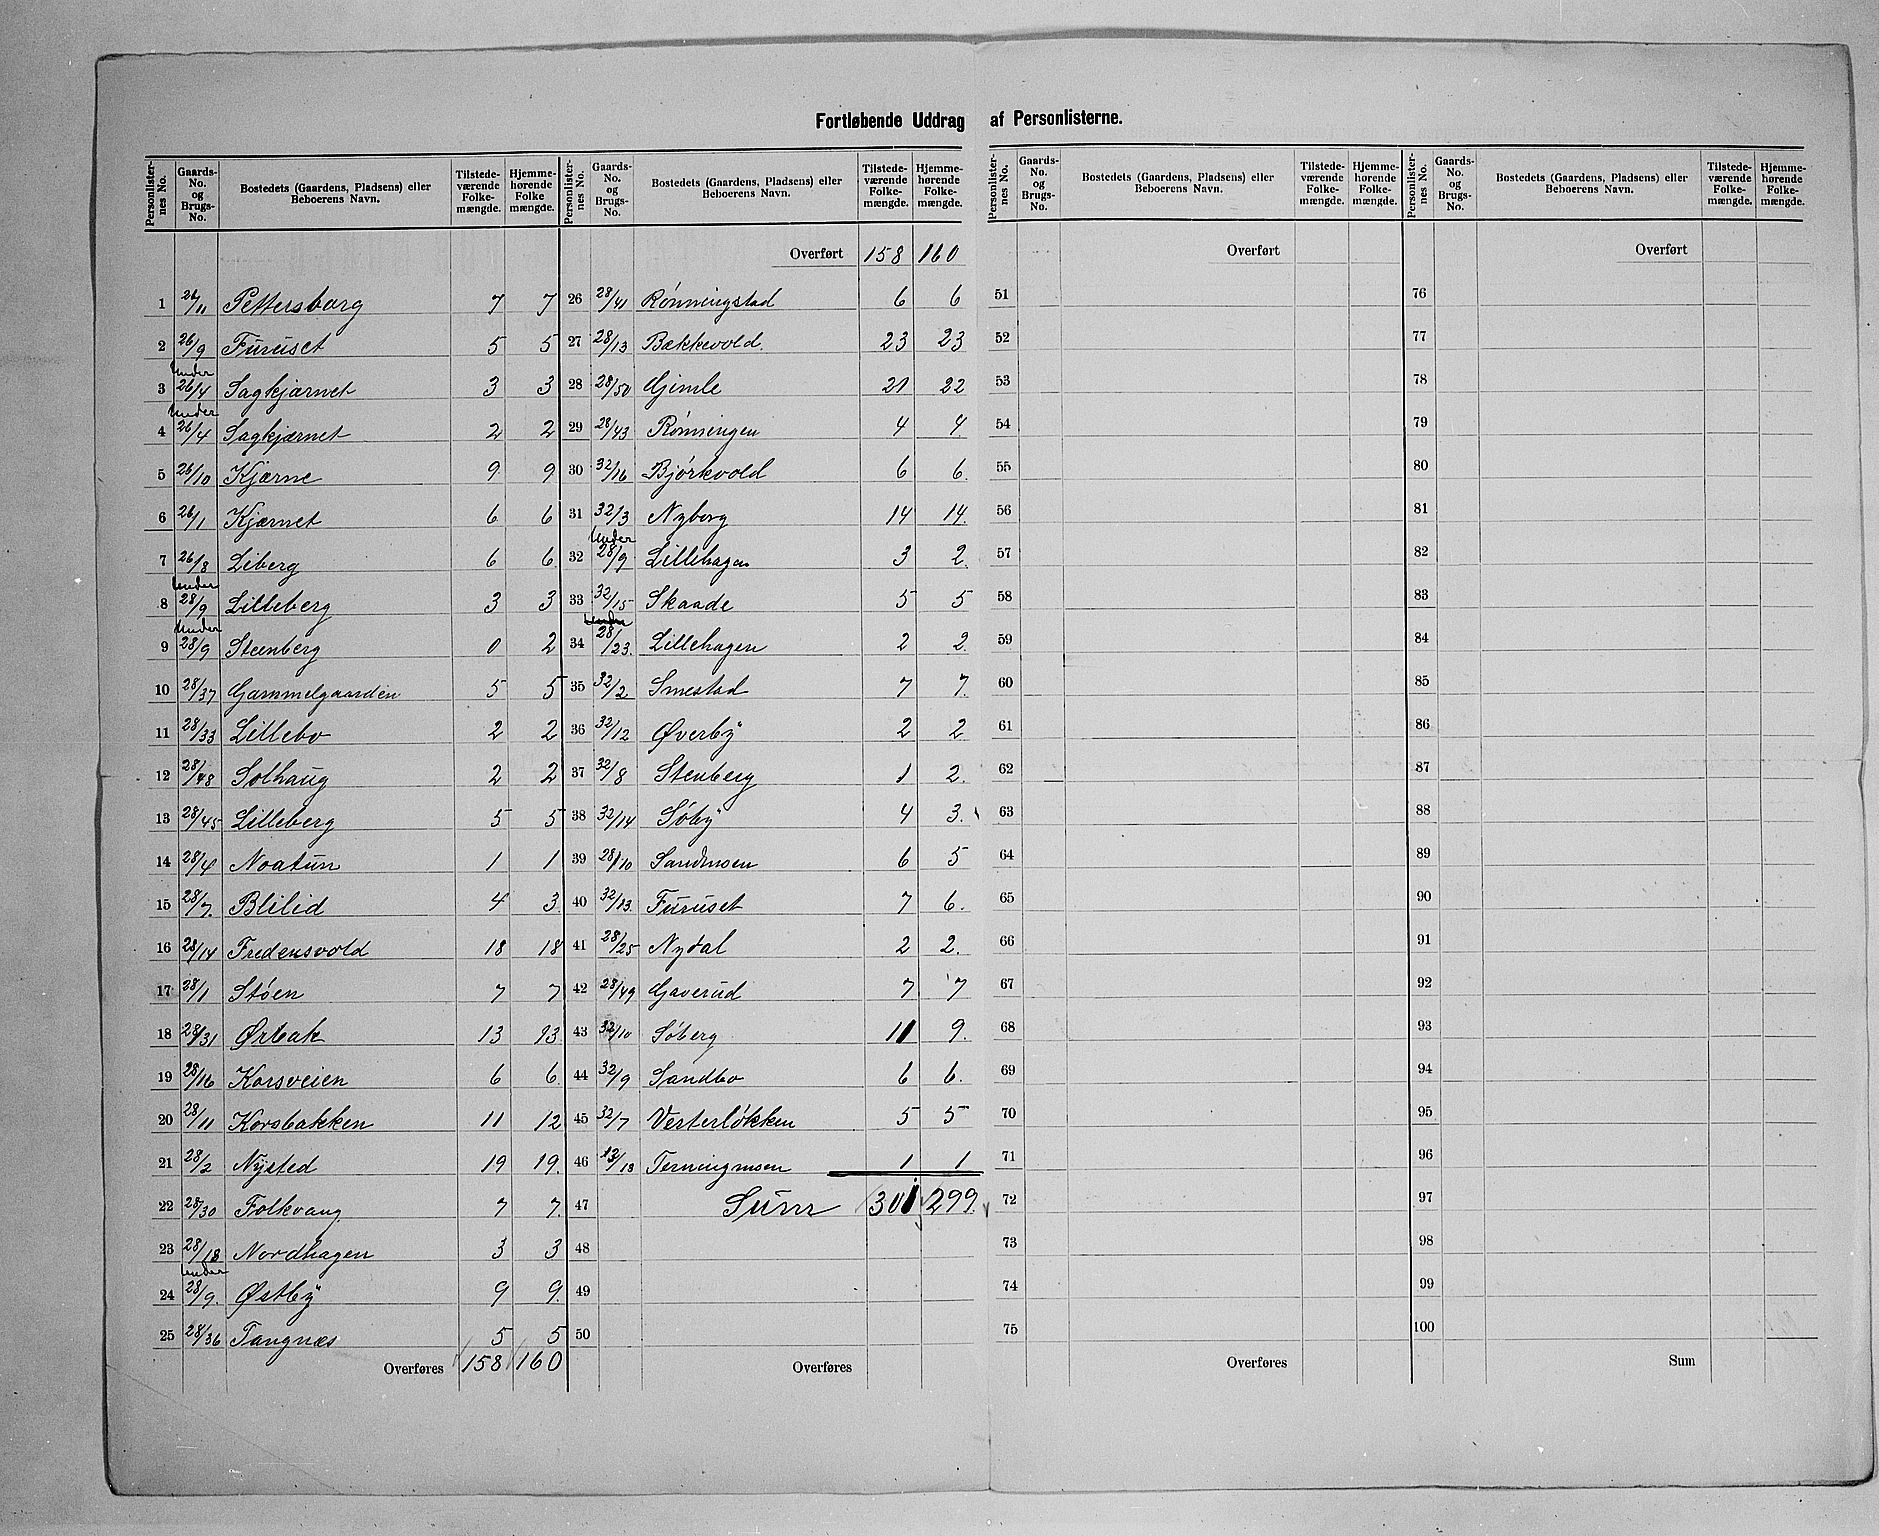 Fortløbende Uddrag af Personlisterne.
Personlisternes No. | Gaards-No. og Brugs-No. | Bostedets (Gaardens, Pladsens) eller Beboerens Navn. | Tilstede-værende Folke-mængde. | Hjemme-hørende Folke mængde.
1 26/11 Pettersborg 7 7
2 26/9 Furuset 5 5
3 Under 26/4 Sagkjærnet 3 3
4 Under 26/4 Sagkjærnet 2 2
5 26/10 Kjærne 9 9
6 26/1 Kjærnet 6 6
7 26/8 Liberg 6 6
8 Under 28/9 Lilleberg 3 3
9 Under 28/9 Steenberg 0 2
10 28/37 Gammelgaarden 5 5
11 28/33 Lillebo 2 2
12 28/48 Solhaug 2 2
13 28/45 Lilleberg 5 5
14 28/4 Noatun 1 1
15 28/7. Blilid 4 3
16 28/14 Fredensvold 18 18
17 28/1 Støen 7 7
18 28/31 Ørbak 13 13
19 28/16 Korsveien 6 6
20 28/11 Korsbakken 11 12
21 28/2 Nysted 19 19.
22 28/30 Folkvang 7 7.
23 28/18 Nordhagen 3 3
24 Under 28/9. Østby 9 9.
25 28/36 Tangnæs 5 5
Overføres 158 160
Personlisternes No. | Gaards-No. og Brugs-No. | Bostedets (Gaardens, Pladsens) eller Beboerens Navn. | Tilstede-værende Folke-mængde. | Hjemme-hørende Folke-mængde.
Overført 158 160
26 28/41 Rønningstad 6 6
27 28/13 Bækkevold. 23 23
28 28/50 Gjimle 21 22
29 28/43 Rønningen 4 4
30 32/16 Bjørkvold 6 6.
31 32/3 Nyborg 14 14.
32 Under 28/9 Lillehagen 3 2.
33 32/15 Skaade 5 5
34 Under 28/23. Lillehagen 2 2.
35 32/2 Smestad 7 7.
36 32/12 Øverby 2 2
37 32/8 Stenberg 1 2.
38 32/14 Søby 4 3.
39 28/10 Sandmoen 6 5
40 32/13. Furuset 7 6.
41 28/25 Nydal 2 2.
42 28/49 Gaverud 7 7
43 32/10 Søberg 11 9.
44 32/9 Sandbo 6 6.
45 32/7 Vesterløkken 5 5
46 13/18 Terningmoen 1 1
47 Sum 301 299.
48
49
50
Overføres
Personlisternes No. | Gaards-No. og Brugs-No. | Bostedets (Gaardens, Pladsens) eller Beboerens Navn. | Tilstede-værende Folke-mængde. | Hjemme-hørende Folke-mængde.
Overført
51
52
53
54
55
56
57
58
59
60
61
62
63
64
65
66
67
68
69
70
71
72
73
74
75
Overføres
Personlisternes No. | Gaards-No. og Brugs-No. | Bostedets (Gaardens, Pladsens) eller Beboerens Navn. | Tilstede-værende Folke-mængde. | Hjemme-hørende Folke-mængde.
Overført
76
77
78
79
80
81
82
83
84
85
86
87
88
89
90
91
92
93
94
95
96
97
98
99
100
Sum